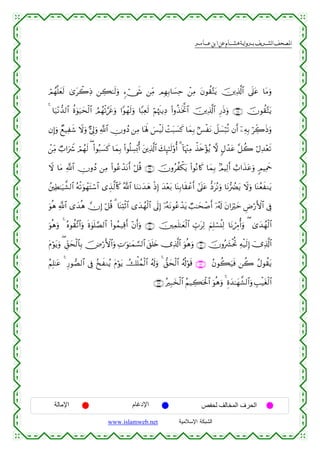 المصحف الشريف برواية هشام عن ابن عامر
وَمَا عَلَى ٱلَّذِينَ يَتَّقُونَ مِنْ حِسَابِهِم مِّن شَىْءٍ وَلَٰكِن ذِكْرَىٰ لَعَلَّهُمْ
يَتَّقُونَ وَذَرِ ٱلَّذِينَ ٱتَّخَذُوا۟ دِينَهُمْ لَعِبًا وَلَهْوًا وَغَرَّتْهُمُ ٱلْحَيَوٰةُ ٱلدُّنْيَا
وَذَكِّرْ بِهِۦٓ أَن تُبْسَلَ نَفْسٌۢ بِمَا كَسَبَتْ لَيْسَ لَهَا مِن دُونِ ٱللَّهِ وَلِىٌّ وَلَا شَفِيعٌ وَإِن
تَعْدِلْ كُلَّ عَدْلٍ لَّا يُؤْخَذْ مِنْهَآ أُو۟لَٰٓئِكَ ٱلَّذِينَ أُبْسِلُوا۟ بِمَا كَسَبُوا۟ لَهُمْ شَرَابٌ مِّنْ
حَمِيمٍ وَعَذَابٌ أَلِيمٌۢ بِمَا كَانُوا۟ يَكْفُرُونَ قُلْ أَنَدْعُوا۟ مِن دُونِ ٱللَّهِ مَا لَا
يَنفَعُنَا وَلَا يَضُرُّنَا وَنُرَدُّ عَلَىٰٓ أَعْقَابِنَا بَعْدَ إِذْ هَدَىٰنَا ٱللَّهُ كَٱلَّذِى ٱسْتَهْوَتْهُ ٱلشَّيَٰطِينُ
فِى ٱلْأَرْضِ حَيْرَانَ لَهُۥٓ أَصْحَٰبٌ يَدْعُونَهُۥٓ إِلَى ٱلْهُدَى ٱئْتِنَا قُلْ إِنَّ هُدَى ٱللَّهِ هُوَ
ٱلْهُدَىٰ وَأُمِرْنَا لِنُسْلِمَ لِرَبِّ ٱلْعَٰلَمِينَ وَأَنْ أَقِيمُوا۟ ٱلصَّلَوٰةَ وَٱتَّقُوهُ وَهُوَ
ٱلَّذِىٓ إِلَيْهِ تُحْشَرُونَ وَهُوَ ٱلَّذِى خَلَقَ ٱلسَّمَٰوَٰتِ وَٱلْأَرْضَ بِٱلْحَقِّ وَيَوْمَ
يَقُولُ كُن فَيَكُونُ قَوْلُهُ ٱلْحَقُّ وَلَهُ ٱلْمُلْكُ يَوْمَ يُنفَخُ فِى ٱلصُّورِ عَٰلِمُ
ٱلْغَيْبِ وَٱلشَّهَٰدَةِ وَهُوَ ٱلْحَكِيمُ ٱلْخَبِيرُ
الحرف المخالف لحفص الإدغام الإمالة
الشبكة الإسلامية www.islamweb.net